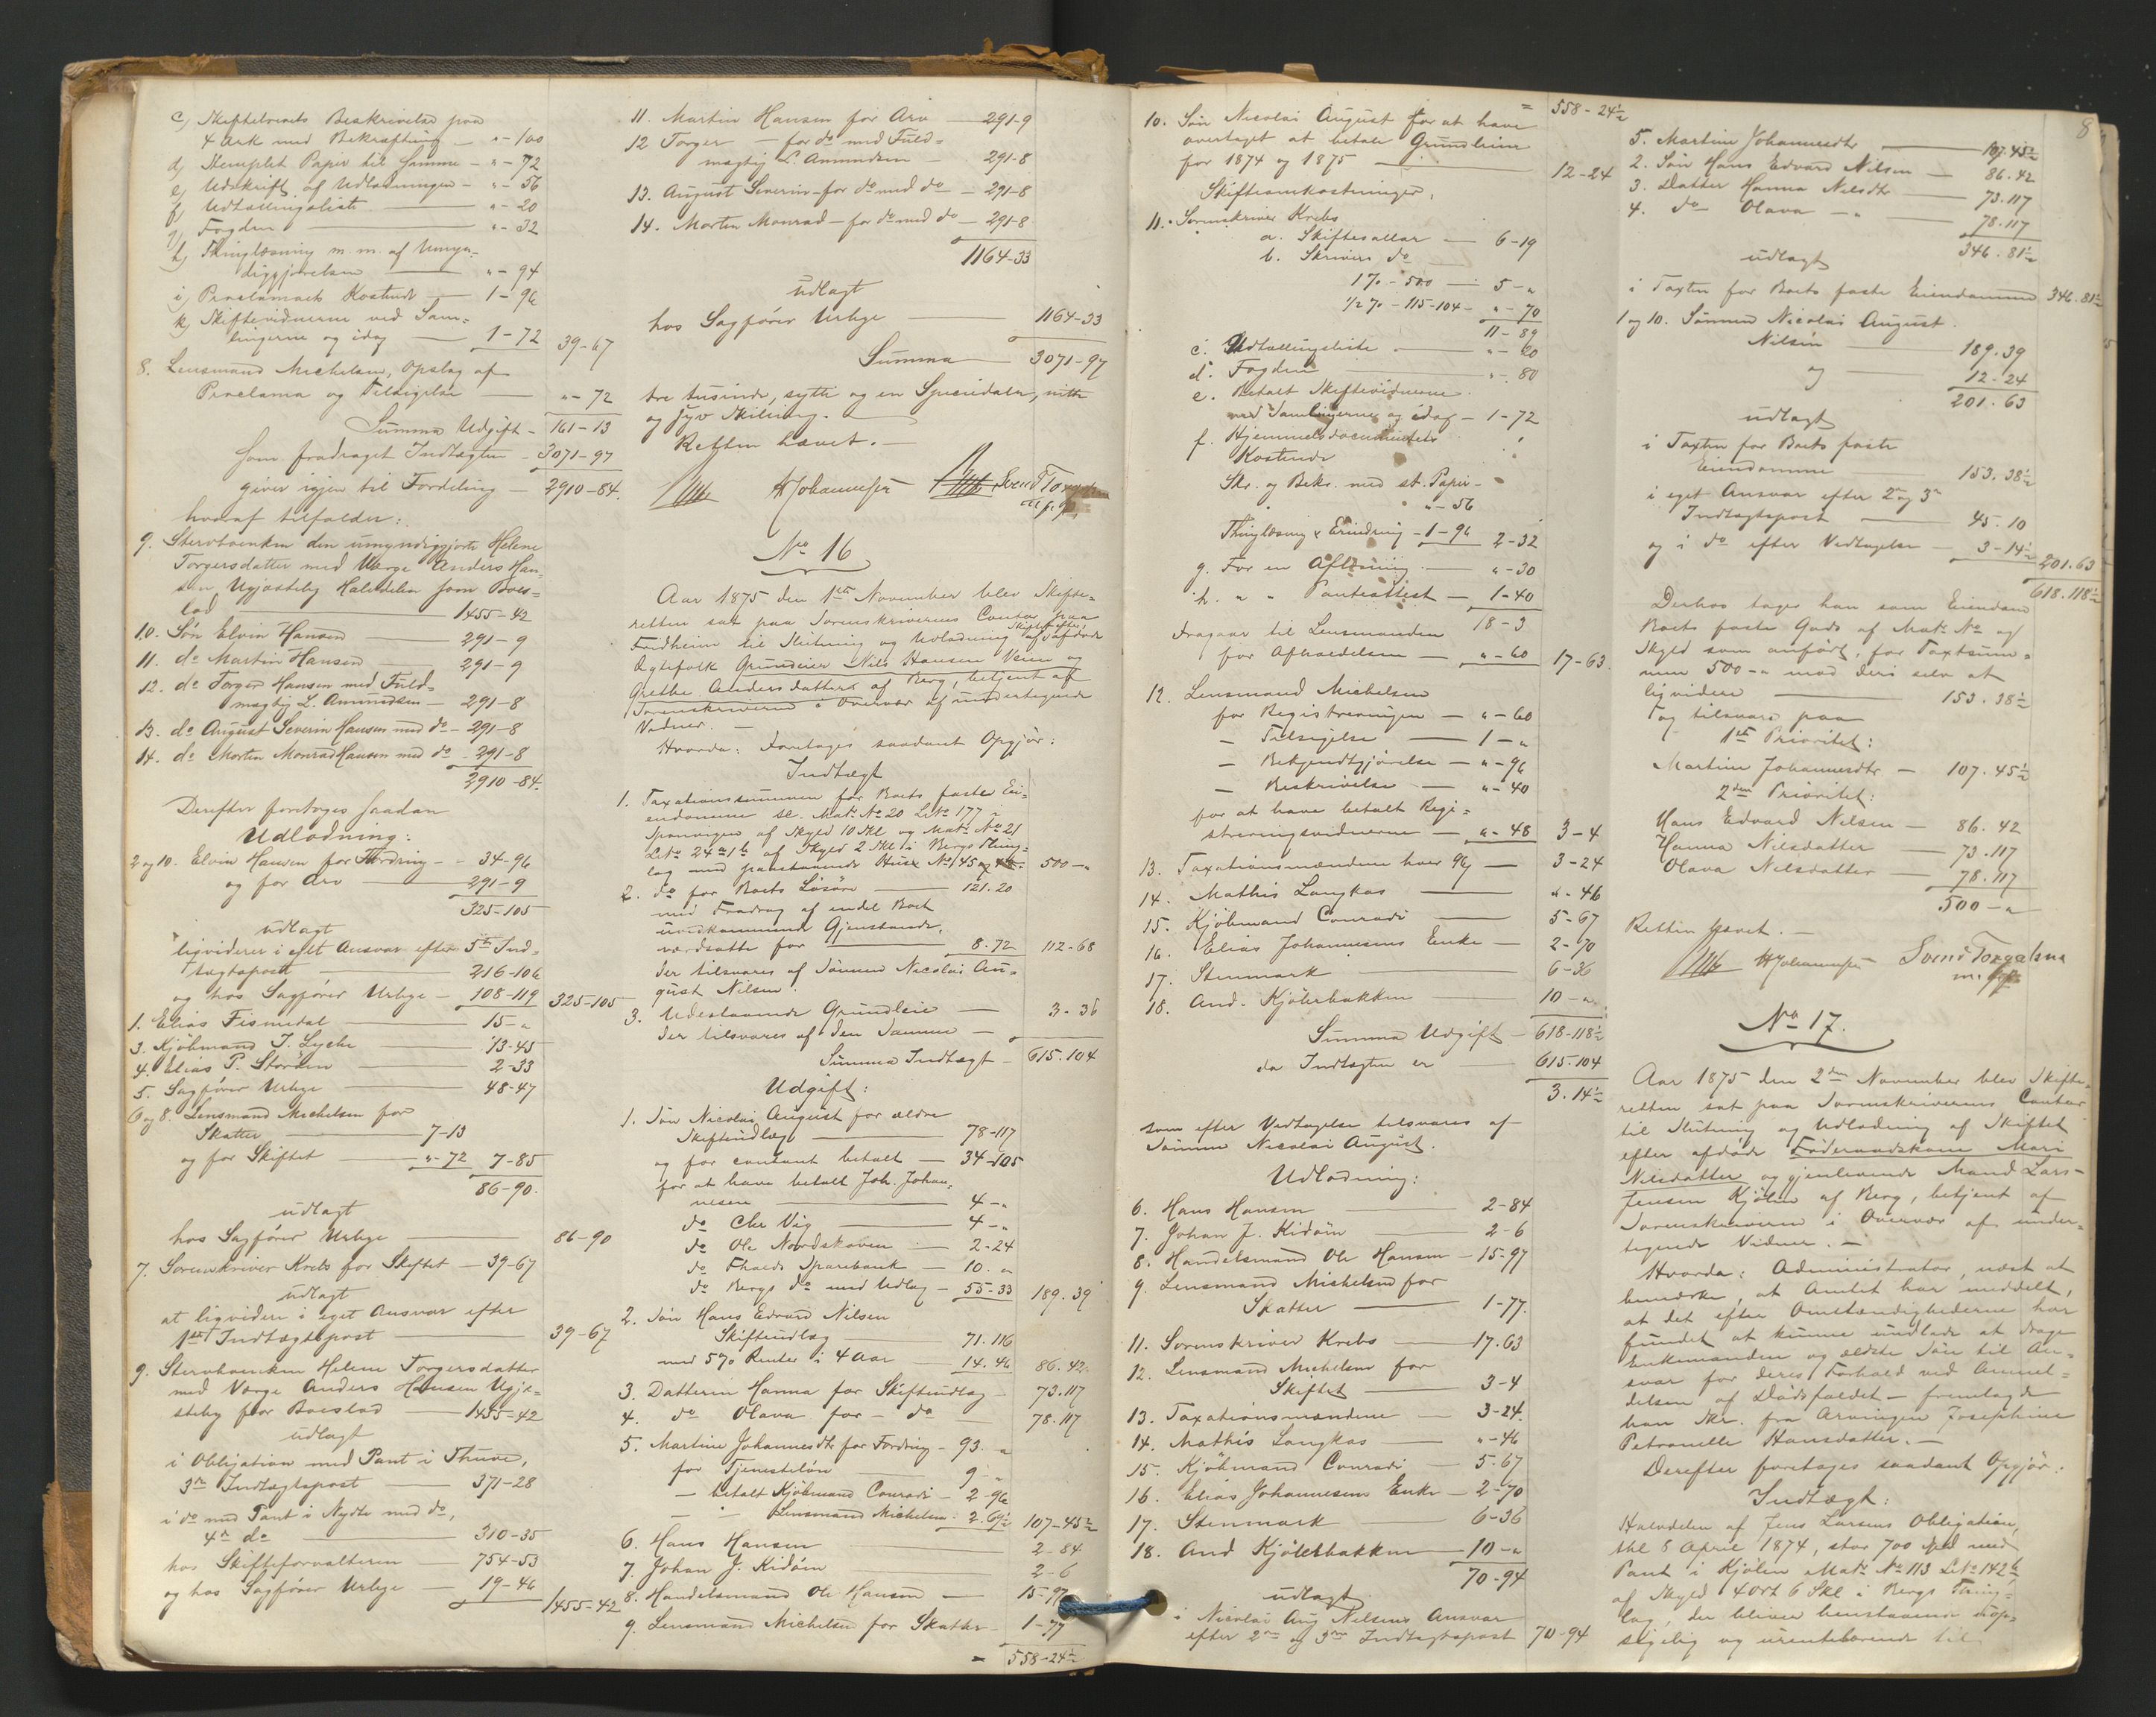 c) Skiftebrevets Beskrivelse paa
4 Ark med Bekræftning — " - 100
d) Stemplet Papir til Samme - " - 72
e) Udskrift af Udlodningen - " - 56
f) Udtællingsliste — " - 20
g) Fogden — " - 32
h) Thinglæsning m. m. af Umyn-
diggjørelsen — " - 94
i) Proclamaets Kostende — 1 - 96
k) Skiftevidnerne ved Sam-
lingerne og idag — 1 - 72 39-67
8. Lensmand Michelsen, Opslag af
Proclama og Tilsigelse — " - 72
Summa Udgift - 161-13
som fradraget Indtægten - 3071-97
giver igjen til Fordeling — 2910-84.
hvoraf tilfalder:
9. Stervboenken den umyndiggjorte Helene
Torgersdatter med Værge Anders Han-
sen Ugjæsteby Halvdelen som Boes-
lod — 1455-42
10. Søn Elvin Hansen — 291-9
11. do Martin Hansen — 291-9
12. do Torger Hansen med Fuld-
mægtig L. Amundsen — 291-8
13. do August Severin Hansen med do - 291-8
14. do Morten Monrad Hansen med do - 291-8
2910-84.
Derefter foretoges saadan
Udlodning:
2 og 10. Elvin Hansen for Fordring - 34-96
og for Arv — 291-9
325-105
udlagt
ligviderer i eget Ansvar efter 5te Ind-
tægtspost — 216-106
og hos Sagfører Urbye — 108-119 325-105
1. Elias Fismedal — 15-"
3. Kjøbmand J. Lyche — 13-45
4. Elias P. Storøen — 2-33
5. Sagfører Urbye — 48-47
6 og 8. Lensmand Michelsen for
Skatter — 7-13
og for Skiftet — "-72 7-85
86-90.
udlagt
hos Sagfører Urbye — 86-90
7. Sorenskriver Krebs for Skiftet — 39-67
udlagt
at ligvidere i eget Ansvar efter
1ste Indtægtspost — 39-67
9. Stervboenken Helene Torgersdatter
med Værge Anders Hansen Ugjæ-
steby for Boeslod — 1455-42
udlagt
i Obligation med Pant i Thune,
3die Indtægtspost — 371-28
i do med Pant i Nydte med do,
4de do — 310-35
hos Skifteforvalteren — 754-53
og hos Sagfører Urbye — 19-46
1455-42
11. Martin Hansen for Arv — 291-9
12 Torger — for do med Fuld-
mægtig L. Amundsen — 291-8
13. August Severin - for do med do — 291-8
14. Morten Monrad — for do med do — 291-8
1164-33
udlagt
hos Sagfører Urbye — 1164-33
Summa — 3071-97
tre tusinde, sytti og en Speciedaler, nitti
og syv Skilling.
Retten hævet. —
HJohannesen Svend Torgersen
No 16
Aar 1875 den 1ste November blev Skifte-
retten sat paa Sorenskriverens Contor paa
Fredheim til Slutning og Udlodning af Skiftet efter afdøde
Ægtefolk Grundeier Nils Hansen Veien og
Grethe Andersdatter af Berg, betjent af
Sorenskriveren i Overvær af undertegnede
Vidner. —
Hvorda: Foretoges saadant Opgjør:
Indtægt
1. Taxationssummen for Boets faste Ei-
endomme sc. Matr. No 20 Litr. 177 i
af Skyld 10 Skl og Matr. No 21
Litr. 24 a 1 b af Skyld 2 Skl i Bergs Thing-
lag med paastaaende Huse No 145 500-"
2. do for Boets Løsøre — 121.20
med Fradrag af endel Boet
uvedkommende Gjenstande,
værdsatte for — 8.72 112-68
der tilsvares af Sønnen Nicolai Au-
gust Nilsen.
3. Udestaaende Grundleie — 3-36
der tilsvares af den Samme —
Summa Indtægt - 615.104
Udgift:
1. Søn Nicolai August for ældre
Skifteudlæg — 78-117
og for contant betalt — 34-105
for at have betalt Joh. Johan-
nesen — 4-"
do Chr Vig — 4-"
do Ole Nordskoven — 2-24
do Fhalds Sparebank — 10-"
do Bergs do med Udlæg — 55-33 189.39
2. Søn Hans Edvard Nilsen
Skifteudlæg — 71.116
med 5% Renter i 4 Aar — 14.46 86.42
3. Datteren Hanna for Skifteudlæg — 73.117
4. do Olava for - do — 78.117
5. Martine Johannesdtr for Fordring - 93-"
for Tjenesteløn — 9-"
— betalt Kjøbmand Conradi - 2-96
— Lensmand Michelsen: 2.69½ 107-45½
6. Hans Hansen — 2-84
7. Johan J. Kidøen — 2-6
8. Handelsmand Ole Hansen — 15-97
9. Lensmand Michelsen for Skatter — 1-77
= 558-24½
= 558-24½
10. Søn Nicolai August for at have
overtaget at betale Grundleien
for 1874 og 1875 — 12-24
Skifteomkostninger,
11. Sorenskriver Krebs
a. Skiftesallar — 6-19
b. Skriver do
1% - 500 — 5-"
1/2% - 115-104 - "-70
11-89
c. Udtællingsliste — "-20
d. Fogden — "-80
e. Betalt Skiftevidnerne
ved Samlingerne og idag — 1-72
f. Hjemmelsdocumentets
Kostende
Skr. og Bekr. med st. Papir -
" - 56
Thinglæsning & Erindring - 1-96 2-32
g. For en Aflæsning — "-30
h. " " Pantattest — 1-40
18-3
dragaar til Lensmanden
for Afholdelsen — "-60 17-63.
12. Lensmand Michelsen
for Registreringen — "-60
— Tilsigelse — 1-"
— Bekjendtgjørelse — "-96
— Beskrivelse — "-40
for at have betalt Regi-
streringsvidnerne — "-48 3-4
13. Taxationsmændene hver 96 — 3-24
14. Mathis Langkas — "-46
15. Kjøbmand Conradi — 5-67
16. Elias Johannesens Enke — 2-70
17. Stenmark — 6-36
18. And. Kjølerbakken — 10-"
Summa Udgift - 618-118½
da Indtægten er — 615.104
3.14½
som efter Vedtagelse tilsvares af
Sønnen Nicolai August.
Udlodning:
6. Hans Hansen — 2-84
7. Johan J. Kidøen — 2-6
8. Handelsmand Ole Hansen — 15-97
9. Lensmand Michelsen for
Skatter — 1-77.
11. Sorenskriver Krebs — 17.63
12. Lensmand Michelsen for
Skiftet — 3-4
13. Taxationsmændene — 3-24.
14. Mathis Langkas — "-46
15. Kjøbmand Conradi — 5.67
16. Elias Johannesens Enke — 2-70
17. Stenmark — 6-36
18. And Kjølerbakken — 10-"
70-94
udlagt
i Nicolai Aug Nilsens Ansvar
efter 2den og 3die Indtægtspost 70-94
8
5. Martine Johannesdtr — 107.45½
2. Søn Hans Edvard Nilsen — 86.42
3. Datter Hanna Nilsdtr — 73.117
4. do Olava — " — 78.117
346.81½
udlagt
i Taxten for Boets faste Eiendomme 346.81½
1 og 10. Sønnen Nicolai August
Nilsen — 189.39
og — 12-24
201.63
udlagt
i Taxten for Boets faste
Eiendomme — 153.38½
i eget Ansvar efter 2den og 3die
Indtægtspost — 45.10
og i do efter Vedtagelse — 3-14½ 201.63
618.118½
Derhos tages han som Eiendom
Boets faste Gods af Matr. No og
Skyld som anført, for Taxtsum-
men 500-" mod deri selv at
ligvidere — 153.38½
og tilsvare paa
1ste Prioritet:
Martine Johannesdtr — 107.45½
2den Prioritet:
Hans Edvard Nilsen — 86.42
Hanna Nilsdatter — 73.117
Olava Nilsdatter — 78.117
500-"
Retten hævet. —
HJohannesen Svend Torgersen
No 17.
Aar 1875 den 2den November blev Skifte-
retten sat paa Sorenskriverens Contor
til Slutning og Udlodning af Skiftet
efter afdøde Føderaadskone Mari
Nilsdatter og gjenlevende Mand Lars
Jensen Kjølen af Berg, betjent af
Sorenskriveren i Overvær af under-
tegnede Vidner. —
Hvorda: Administrator, næst at
bemærke, at Amtet har meddelt,
at det efter Omstændighederne har
fundet at kunne undlade at drage
Enkemanden og ældste Søn til An-
svar for deres Forhold ved Anmel-
delsen af Dødsfaldet — fremlagde
han Skr. fra Arvingen Josephine
Petronelle Hansdatter. —
Derefter foretoges saadant Opgjør:
Indtægt:
Halvdelen af Jens Larsens Obligation,
thl 8 April 1874, stor 700 Spd med
Pant i Kjølen Matr. No 113 Litr. 142 b,
af Skyld 4 Ort 6 Skl i Bergs Thing-
lag, der bliver henstaaende uop-
sigelig og urentebærende til